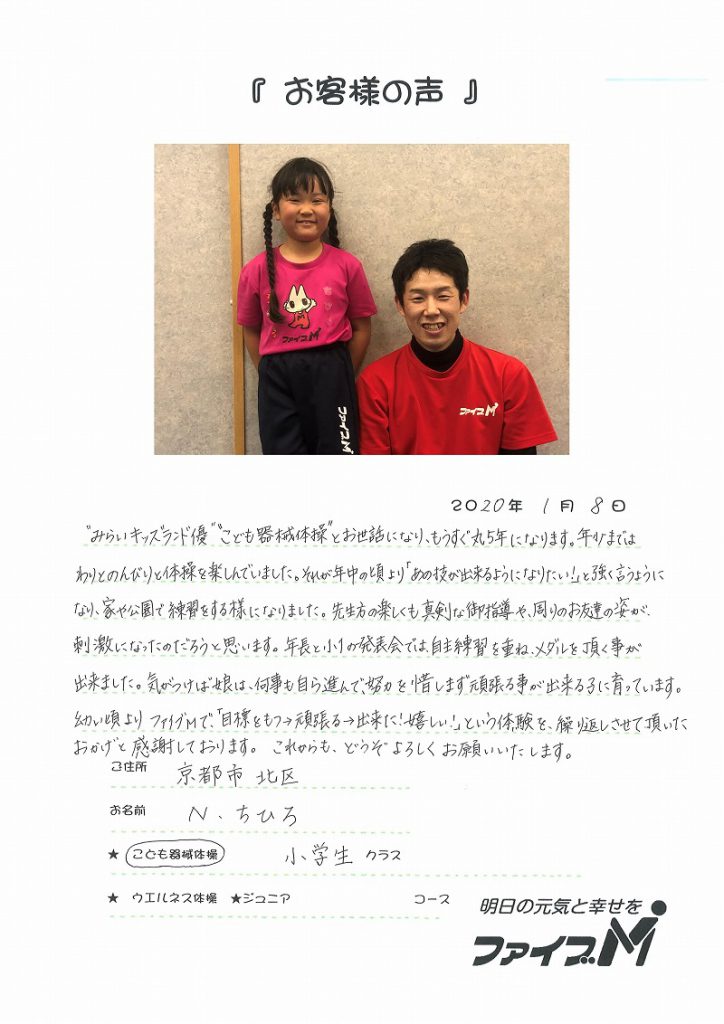 『 お客様の声 』
ファイブM
ファイブM
ファイブM
2020年 1月 8日
"みらいキッズランド優" "こども器械体操"とお世話になり、もうすぐ丸5年になります。年少までは
わりとのんびりと体操を楽しんでいました。それが年中の頃より「あの技が出来るようになりたい!」と強く言うように
なり、家や公園で練習をする様になりました。先生方の楽しくも真剣な御指導や、周りのお友達の姿が、
刺激になったのだろうと思います。年長と小1の発表会では、自主練習を重ね、メダルを頂く事が
出来ました。気がつけば娘は、何事も自ら進んで、努力を惜しまず頑張る事が出来る子に育っています。
幼い頃よりファイブMで、「目標をもつ→頑張る→出来た!嬉しい!」という体験を、繰り返しさせて頂いた
おかげと感謝しております。 これからも、どうぞよろしくお願いいたします。
ご住所 京都市 北区
お名前 N.ちひろ
★ こども器械体操 小学生 クラス
★ ウエルネス体操 ★ジュニア コース
明日の元気と幸せを
ファイブM